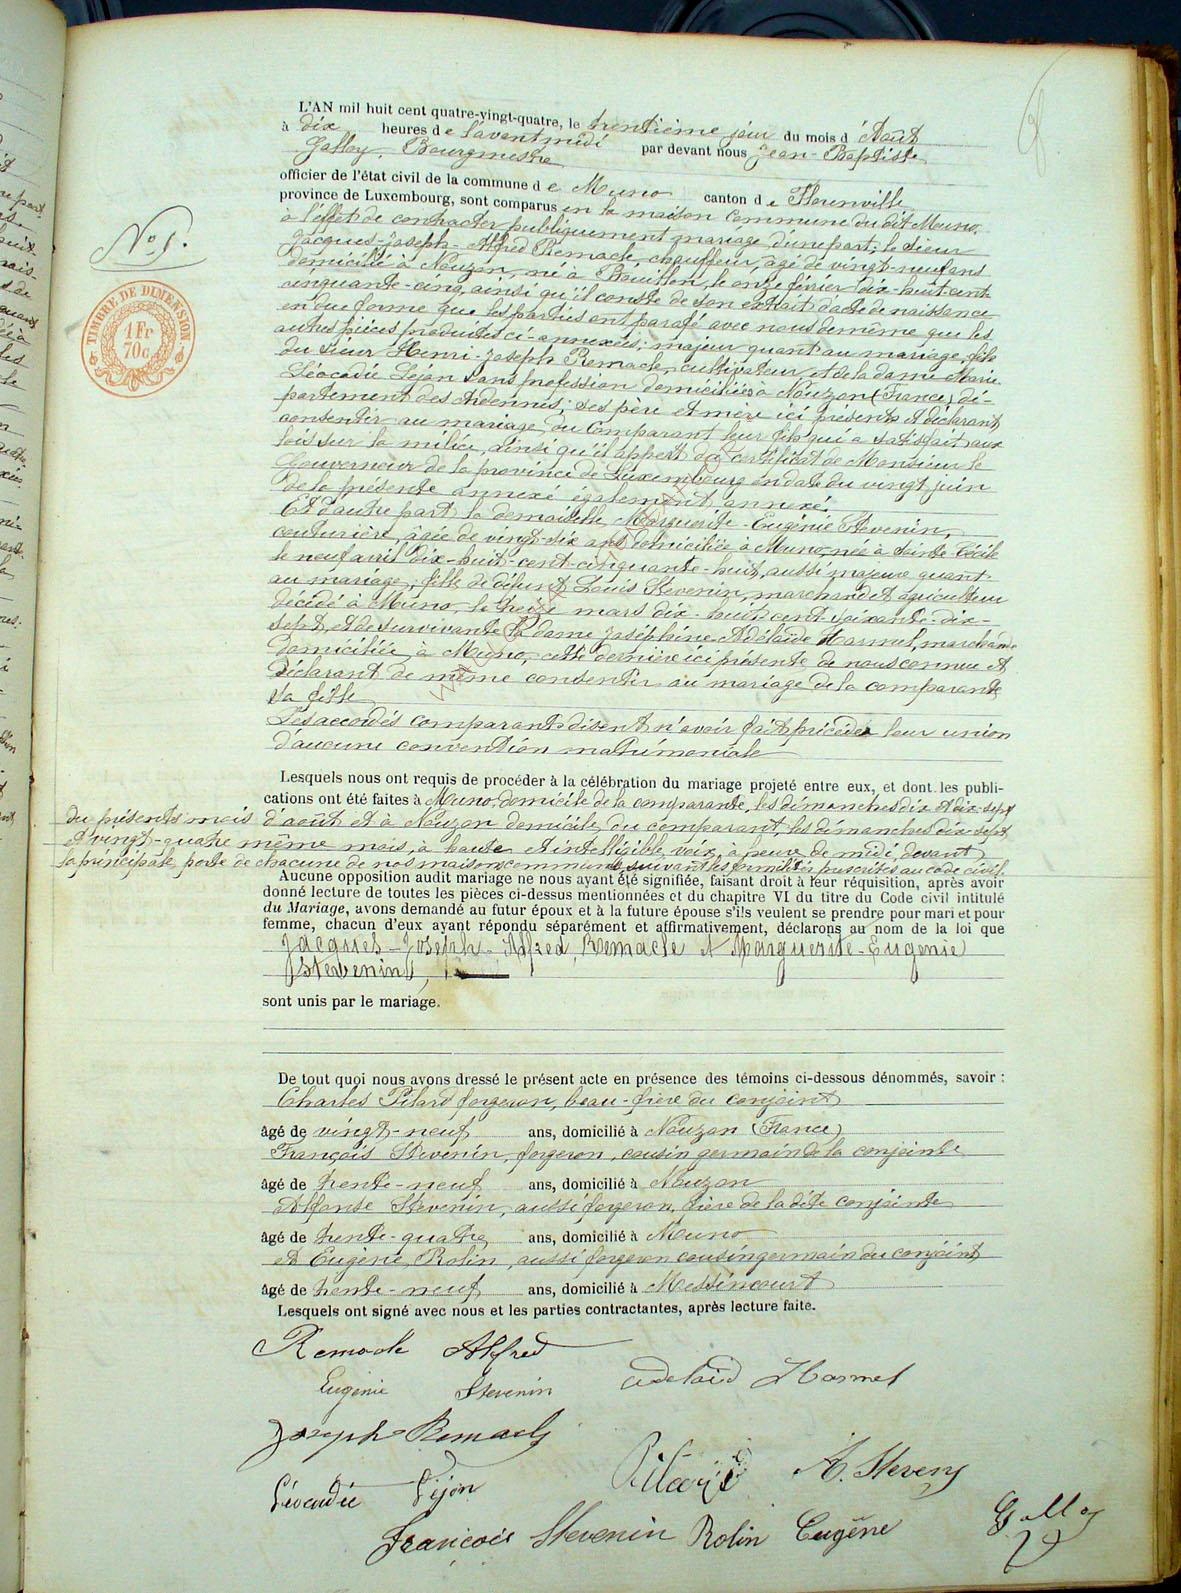 L'AN mil huit cent quatre-vingt-quatre, le trentième jour du mois d'Août
à dix heures de l'avant midi par devant nous Jean-Baptiste
Galloy, Bourgmestre
officier de l'état civil de la commune de Muno canton de Florenville
province de Luxembourg, sont comparus en la maison Commune du dit Muno,
à l'effet de contracter publiquement mariage, d'une part; le sieur
Jacques-Joseph-Alfred Remacle, chauffeur, âgé de vingt-neuf ans
domicilié à Nouzon, né à Bouillon, le onze février dix-huit-cent-
cinquante-cinq, ainsi qu'il conste de son extrait d'acte de naissance
en due forme que les parties ont parafé avec nous de même que les
autres pièces produites ci-annexées; majeur quant au mariage, fils
du sieur Henri-Joseph Remacle, cultivateur et de la dame Marie
Léocadie Lejon sans profession domiciliés à Nouzon (France) dé-
partement des Ardennes; ses père et mère ici présents et déclarant
consentir au mariage du Comparant leur fils qui a satisfait aux
lois sur la milice, ainsi qu'il appert du certificat de Monsieur le
Gouverneur de la province de Luxembourg en date du vingt juin
de la présente annexé également annexé.
Et d'autre part la demoiselle Marguerite-Eugénie Stevenin,
couturière, âgée de vingt-six ans domiciliée à Muno, née à Sainte Cécile
le neuf avril dix-huit-cent-cinquante-huit, aussi majeure quant
au mariage, fille de défunt Louis Stevenin, marchand et agriculteur
décédé à Muno, le treize mars dix-huit cent soixante-dix-
sept, et de survivante la dame Joséphine Adélaïde Harmel, marchande
domiciliée à Muno, cette dernière ici présente de nous connue et
déclarant de même consentir au mariage de la comparante
sa fille
Les accordés comparants disent n'avoir fait précéder leur union
d'aucune convention matrimoniale
Lesquels nous ont requis de procéder à la célébration du mariage projeté entre eux, et dont les publi-
cations ont été faites à Muno, domicile de la comparante, les dimanches dix et dix-sept
du présents mois d'août et à Nouzon domicile du comparant, les dimanches dix-sept
et vingt-quatre même mois, à haute et intelligible voix, à heure de midi, devant
la principale porte de chacune de nos maisons communes suivant les formalités prescrites au code civil.
Aucune opposition audit mariage ne nous ayant été signifiée, faisant droit à leur réquisition, après avoir
donné lecture de toutes les pièces ci-dessus mentionnées et du chapitre VI du titre du Code civil intitulé
du Mariage, avons demandé au futur époux et à la future épouse s'ils veulent se prendre pour mari et pour
femme, chacun d'eux ayant répondu séparément et affirmativement, déclarons au nom de la loi que
Jacques-Joseph-Alfred Remacle et Marguerite-Eugénie
Stevenin,
sont unis par le mariage.
De tout quoi nous avons dressé le présent acte en présence des témoins ci-dessous dénommés, savoir :
Charles Pilard forgeron, beau-frère du conjoint
âgé de vingt-neuf ans, domicilié à Nouzon (France)
François Stevenin, forgeron, cousin germain de la conjointe
âgé de trente-neuf ans, domicilié à Nouzon
Alfonse Stevenin, aussi forgeron, frère de la dite conjointe
âgé de trente-quatre ans, domicilié à Muno
et Eugène Rolin, aussi forgeron cousin germain du conjoint
âgé de trente-neuf ans, domicilié à Messincourt
Lesquels ont signé avec nous et les parties contractantes, après lecture faite.
Remacle Alfred
Eugénie Stevenin adelaid Harmel
Joseph Remacle
Pilard A. Steveny
Léocadie Lejon
François Stevenin Rolin Eugène Galloy
No 5.
TIMBRE DE DIMENSION
1 Fr
70 c